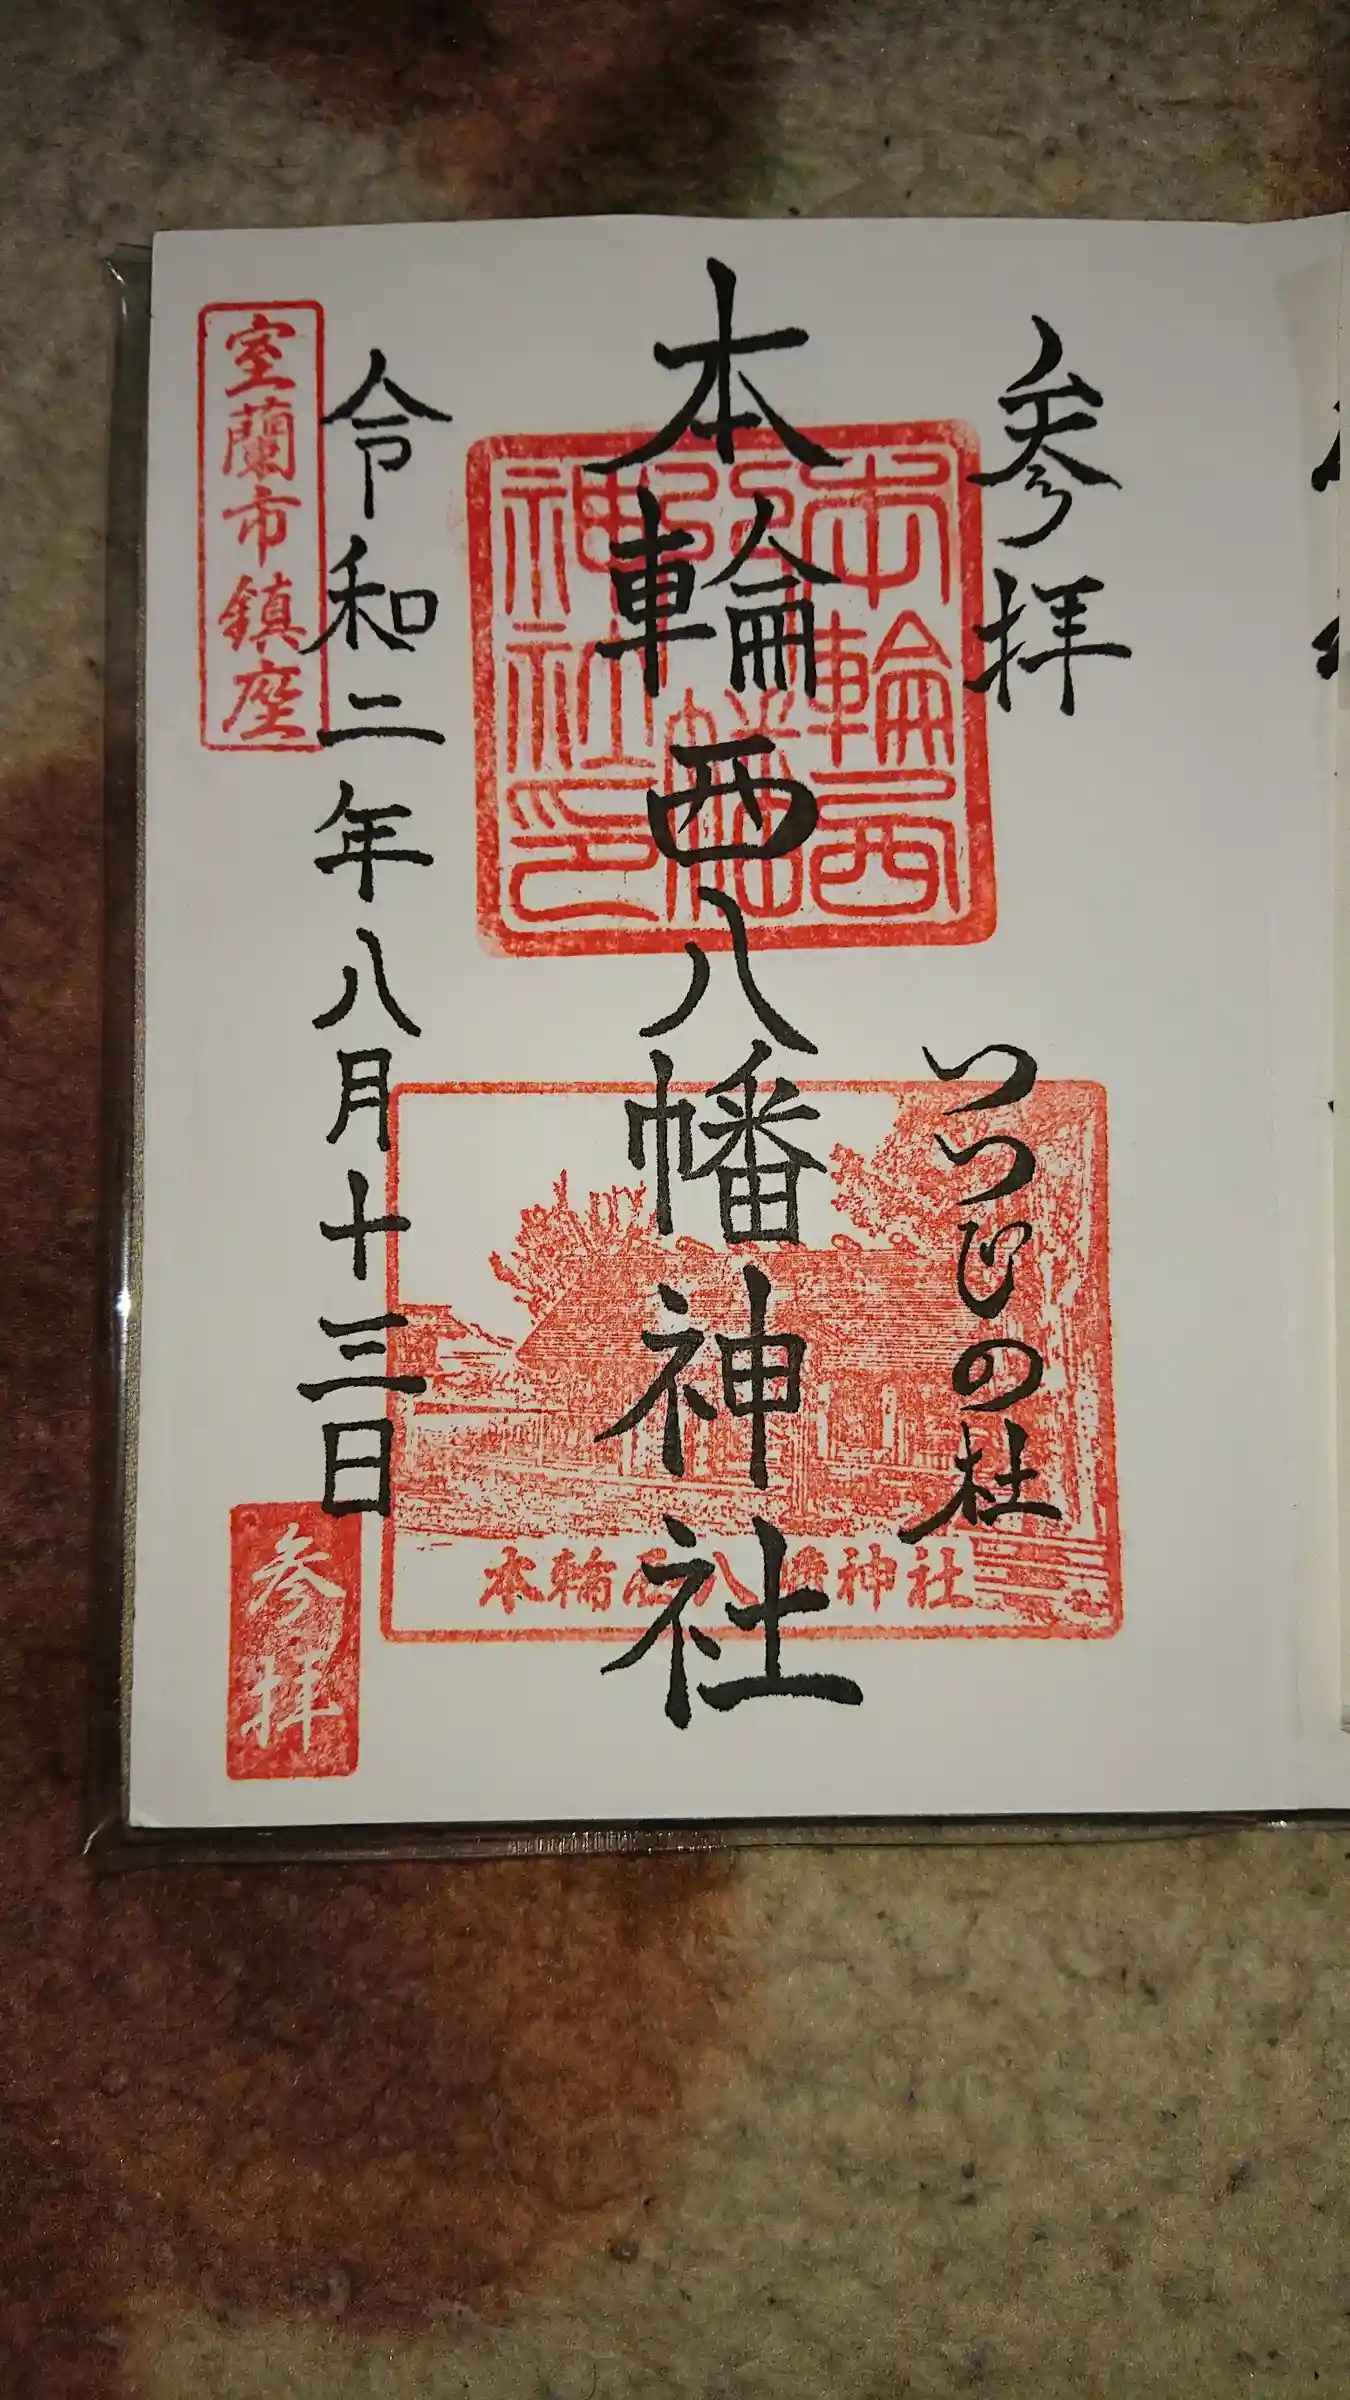 参拝
つつじの杜
本輪西八幡神社
本輪西八幡神社印
本輪西八幡神社
令和二年八月十三日
室蘭市鎮座
参拝